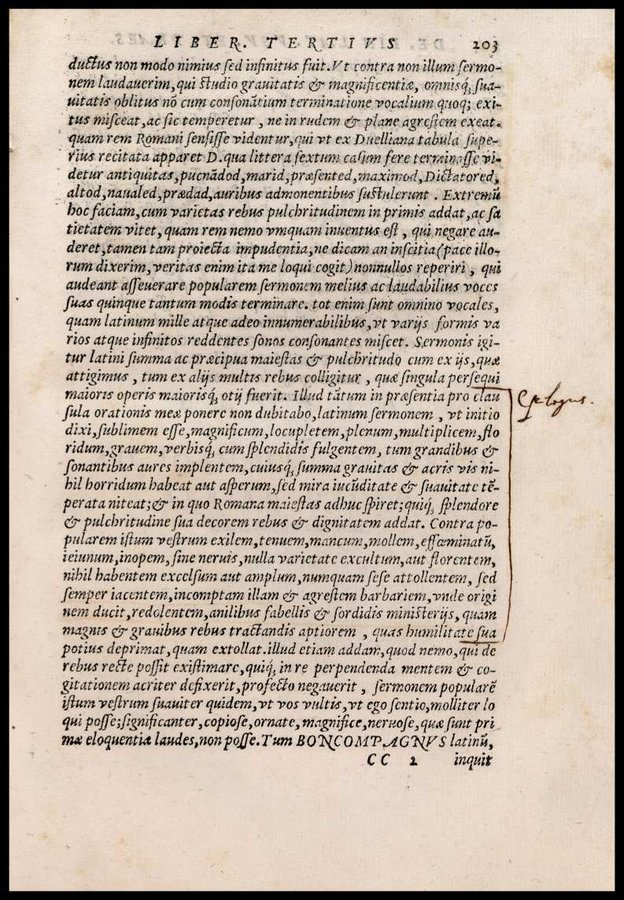 LIBER. TERTIVS 203
ductus non modo nimius sed infinitus fuit. Vt contra non illum sermo-
nem laudauerim, qui studio grauitatis & magnificentiæ, omnisq́, sua-
uitatis oblitus nō cum consonātium terminatione vocalium quoq; exi-
tus misceat, ac sic temperetur, ne in rudem & plane agrestem exeat.
quam rem Romani sensisse videntur, qui vt ex Duelliana tabula supe-
rius recitata apparet D. qua littera sextum casum fere terminasse vi-
detur antiquitas, pucnādod, marid, præsented, maximod, Dictatored,
altod, naualed, prædad, auribus admonentibus sustulerunt. Extremū
hoc faciam, cum varietas rebus pulchritudinem in primis addat, aç sa
tietatem vitet, quam rem nemo vmquam inuentus est, qui negare au-
deret, tamen tam proiecta impudentia, ne dicam an inscitia (pace illo-
rum dixerim, veritas enim ita me loqui cogit) nonnullos reperiri, qui
audeant asseuerare popularem sermonem melius ac laudabilius voces
suas quinque tantum modis terminare. tot enim sunt omnino vocales,
quam latinum mille atque adeo innumerabilibus, vt varijs formis va
rios atque infinitos reddentes sonos consonantes miscet. Sermonis igi-
tur latini summa ac præcipua maiestas & pulchritudo cum ex ijs, quæ
attigimus, tum ex alijs multis rebus colligitur, quæ singula persequi
maioris operis maiorisq́, otij fuerit. Illud tātum in præsentia pro clau
sula orationis meæ ponere non dubitabo, latinum sermonem, vt initio
dixi, sublimem esse, magnificum, locupletem, plenum, multiplicem, flo
ridum, grauem, verbisq́, cum splendidis fulgentem, tum grandibus &
sonantibus aures implentem, cuiusq́, summa grauitas & acris vis ni-
hil horridum habeat aut asperum, sed mira iucūditate & suauitate tē-
perata niteat; & in quo Romana maiestas adhuc spiret; quiq́, splendore
& pulchritudine sua decorem rebus & dignitatem addat. Contra po-
pularem istum vestrum exilem, tenuem, mancum, mollem, effœminatū,
ieiunum, inopem, sine neruis, nulla varietate excultum, aut florentem,
nihil habentem excelsum aut amplum, numquam sese attollentem, sed
semper iacentem, incomptam illam & agrestem barbariem, vnde origi
nem ducit, redolentem, anilibus fabellis & sordidis ministerijs, quam
magnis & grauibus rebus tractandis aptiorem, quas humilitate sua
potius deprimat, quam extollat. illud etiam addam, quod nemo, qui de
rebus recte possit existimare, quiq́, in re perpendenda mentem & co-
gitationem acriter defixerit, profecto negauerit, sermonem popularē
istum vestrum suauiter quidem, vt vos vultis, vt ego sentio, molliter lo
qui posse; significanter, copiose, ornate, magnifice, neruose, quæ sunt pri
mæ eloquentiæ laudes, non posse. Tum BONCOMPAGNVS latinū,
CC 2 inquit
epilogus.